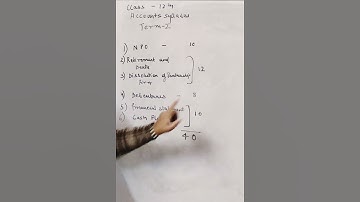 Class - 12th
Accounts Syllabus
Term-2
1) NPO - 10
2) Retirement and
Death
3) Dissolution of Partnership
firm
12
4) Debentures - 8
5) Financial statement
6) Cash
10
40